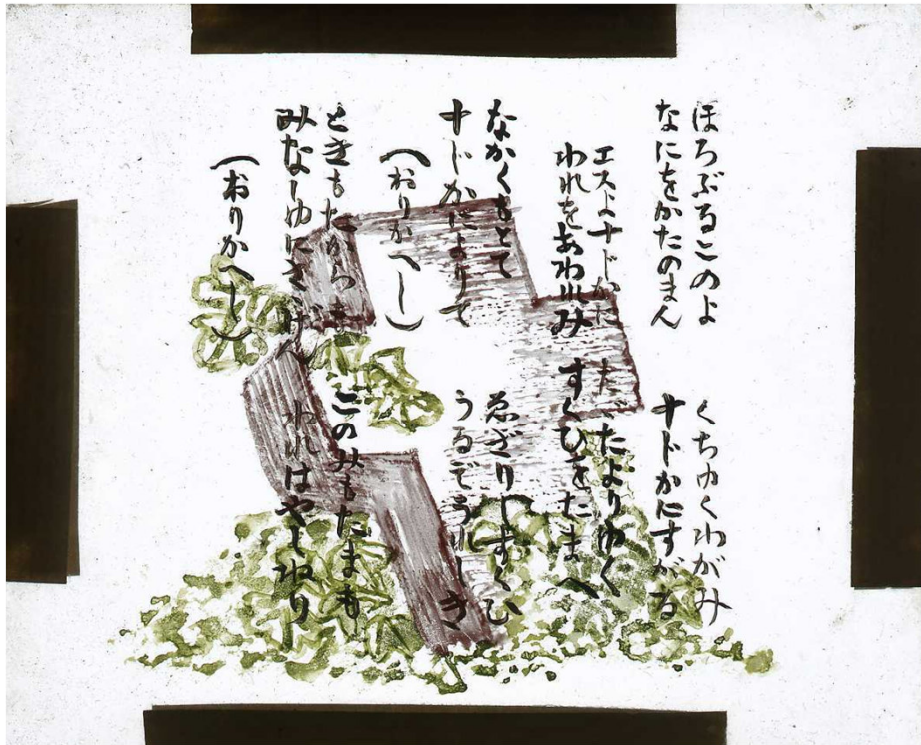 ほろぶるこのよ　くちゆくわがみ
なにをかたのまん　十じかにすがる
エスよ十じかに　たゞたよりゆく
われをあわれみ　すくひをたまへ
なかくもとて　ゑざりしすくひ
十じかによりて　うるぞうれしき
(おりかへし)
ときもたからも　このみもたまも
みなしゆにさゝげん　われはやしねり
(おりかへし)